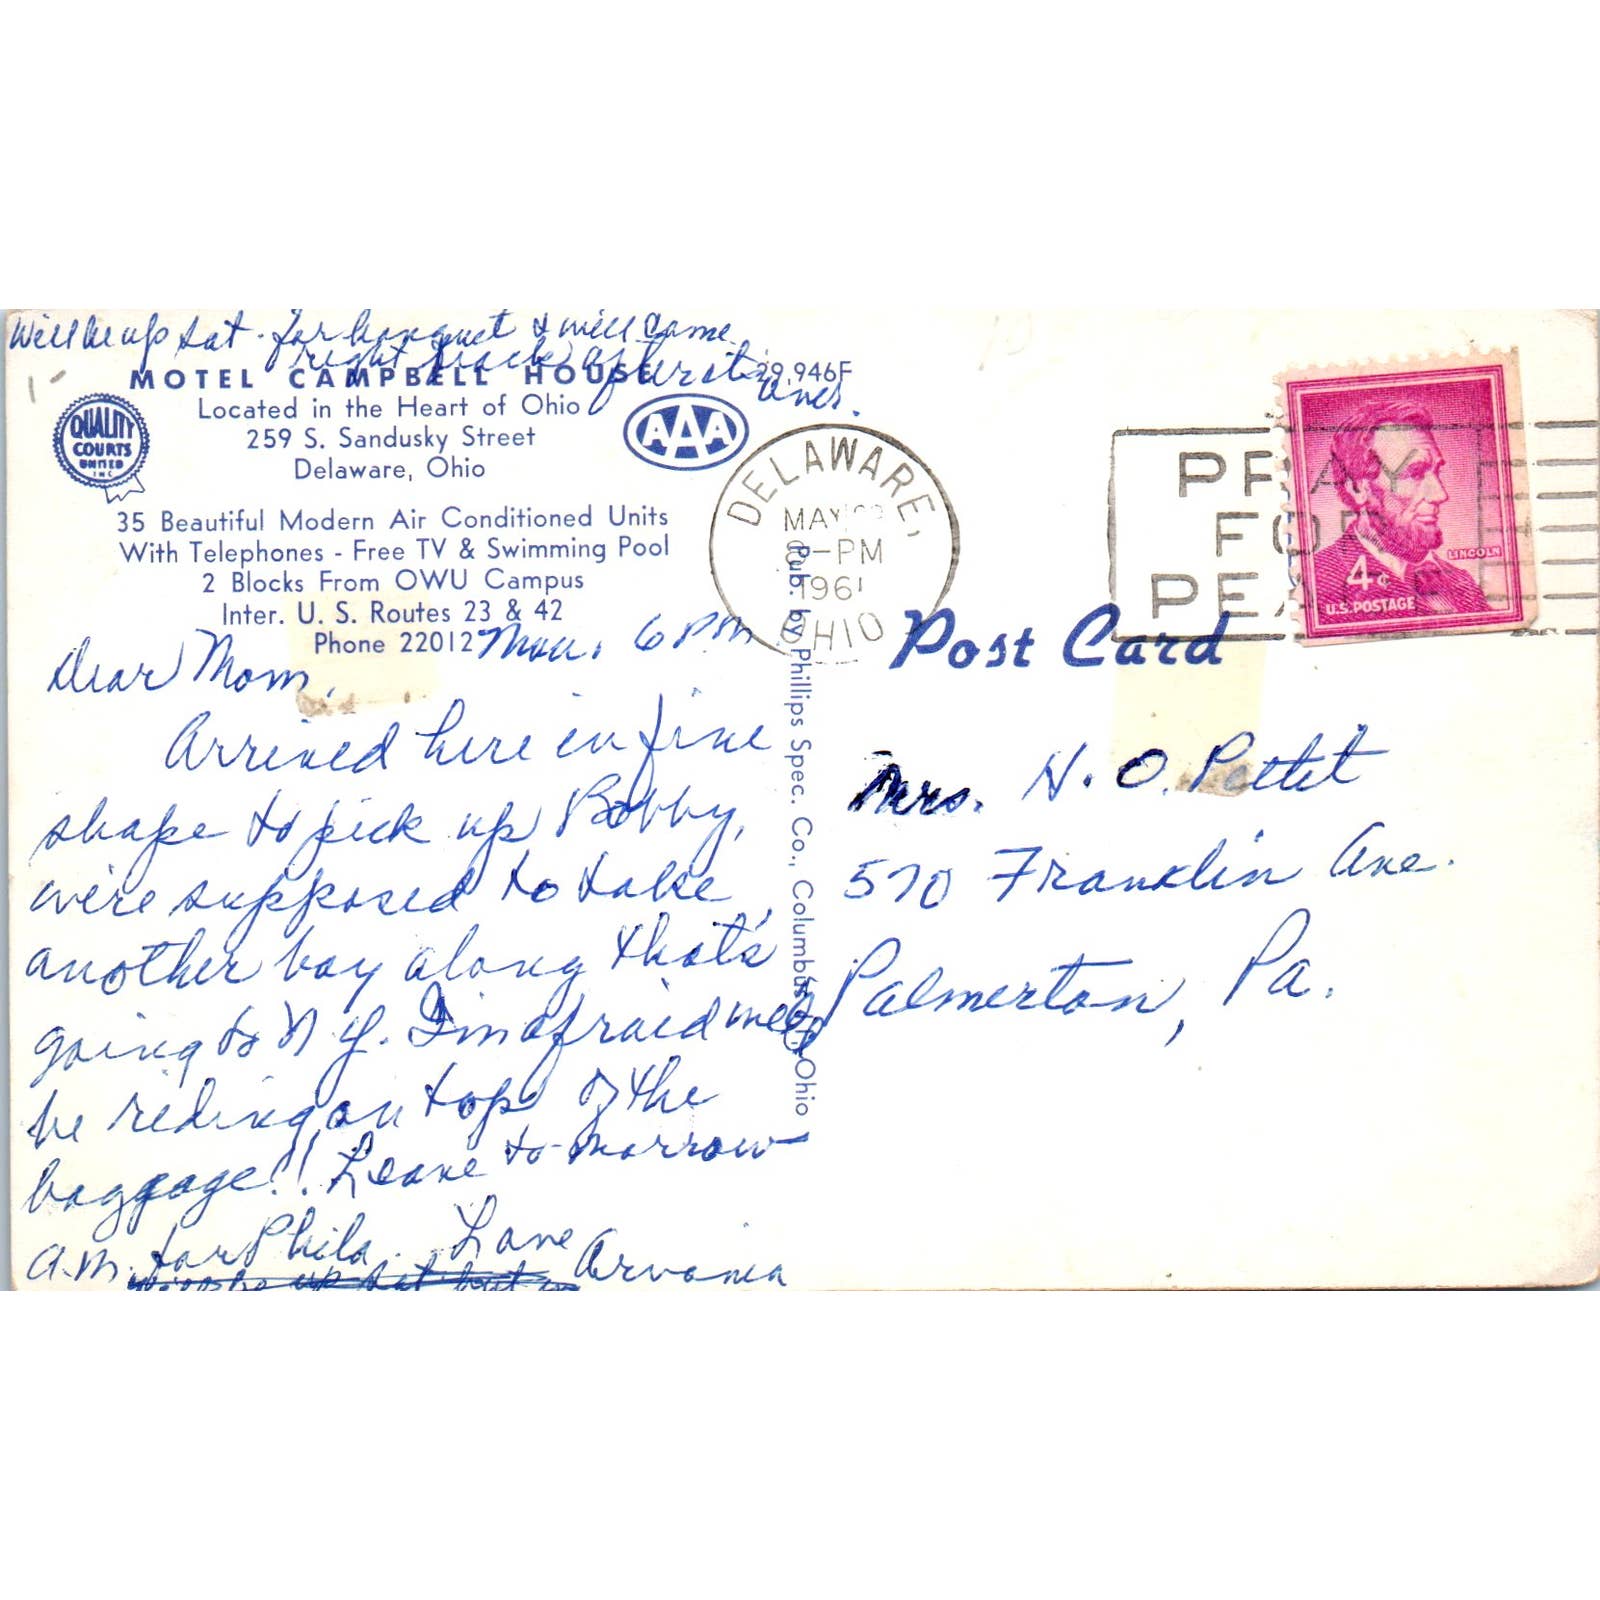 Will be up Sat. for banquet & will come
right back after it's
over.
MOTEL CAMPBELL HOUSE 29,946F
Located in the Heart of Ohio
259 S. Sandusky Street
Delaware, Ohio
QUALITY
COURTS
UNITED
INC
AAA
35 Beautiful Modern Air Conditioned Units
With Telephones - Free TV & Swimming Pool
2 Blocks From OWU Campus
Inter. U. S. Routes 23 & 42
Phone 22012
Mon. 6 PM
Dear Mom,
Arrived here in fine
shape to pick up Bobby,
we're supposed to take
another boy along that's
going to N Y. I'm afraid we'll
be riding on top of the
baggage!! Leave to-morrow
a.m. for Phila. Love
Arvania
Will be up Sat but
Pub. by Phillips Spec. Co., Columbus, Ohio
DELAWARE,
MAY
PM
1961
OHIO
PRAY
FOR
PEACE
LINCOLN
4¢
U.S. POSTAGE
Post Card
Mrs. H. O. Pettit
570 Franklin Ave.
Palmerton, Pa.